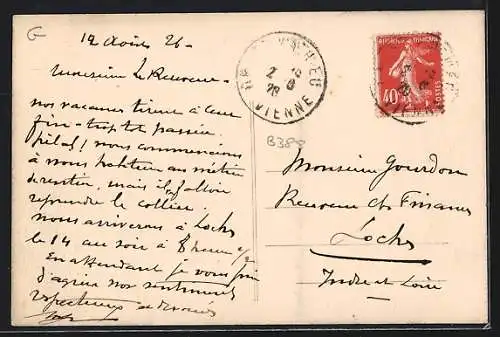 12 Août 26 -
Monsieur le Receveur -
nos vacances tirent à leur
fin - trop tôt passées
hélas ! nous commencions
à nous habituer au métier
de rentier, mais il faut
reprendre le collier.
nous arriverons à Loches
le 14 au soir à 8 heures 1/2
En attendant je vous prie
d'agréer nos sentiments
respectueux
VIENNE
B388
40
POSTES
Monsieur Gourdon
Receveur des Finances
Loches
Indre et Loire